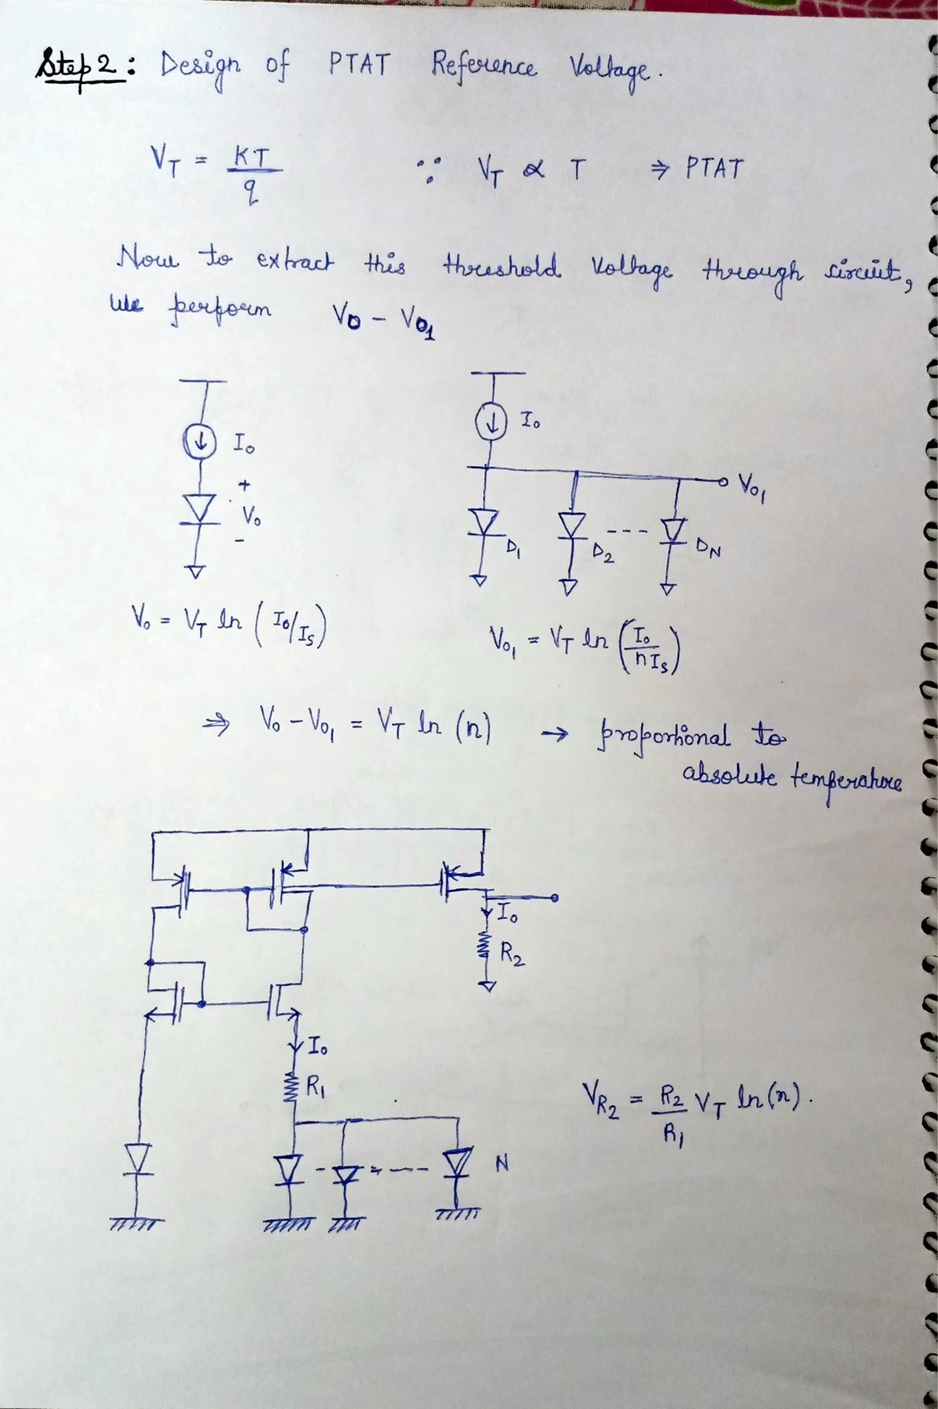 Step 2 : Design of PTAT Reference Voltage.
V_T = KT/q ∵ V_T ∝ T ⇒ PTAT
Now to extract this threshold Voltage through circuit,
We perform V_0 - V_01
I_0
I_0
+
V_0
-
V_01
D_1
D_2
---
D_N
V_0 = V_T ln ( I_0/I_S )
V_01 = V_T ln ( I_0/nI_S )
⇒ V_0 - V_01 = V_T ln (n) → proportional to
absolute temperature
I_0
R_2
I_0
R_1
V_R2 = R_2/R_1 V_T ln(n).
N